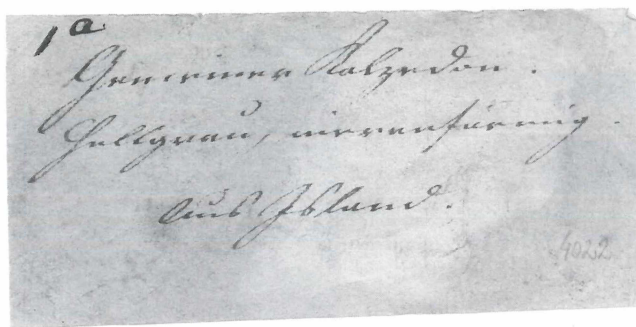 1a
Gemeiner Kalzedon.
Hellgrau, nierenförmig.
Aus Island.
4022